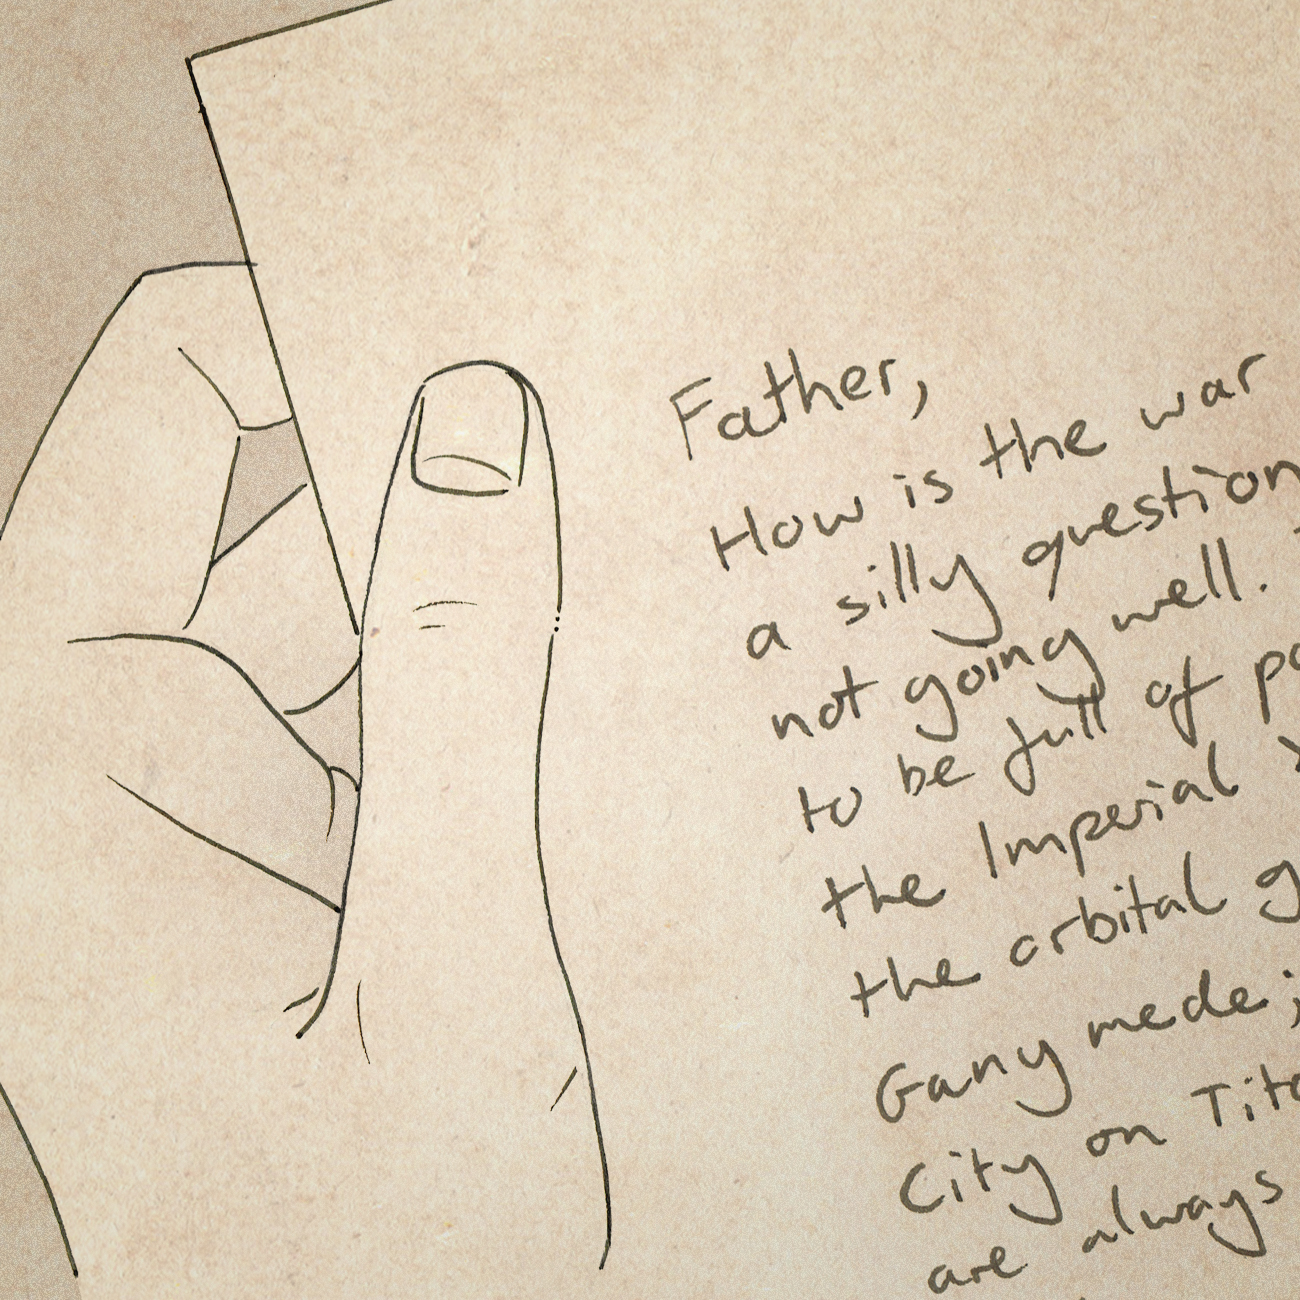 Father,
How is the war
a silly question
not going well.
to be full of
the Imperial
the orbital
Ganymede;
City on
are always